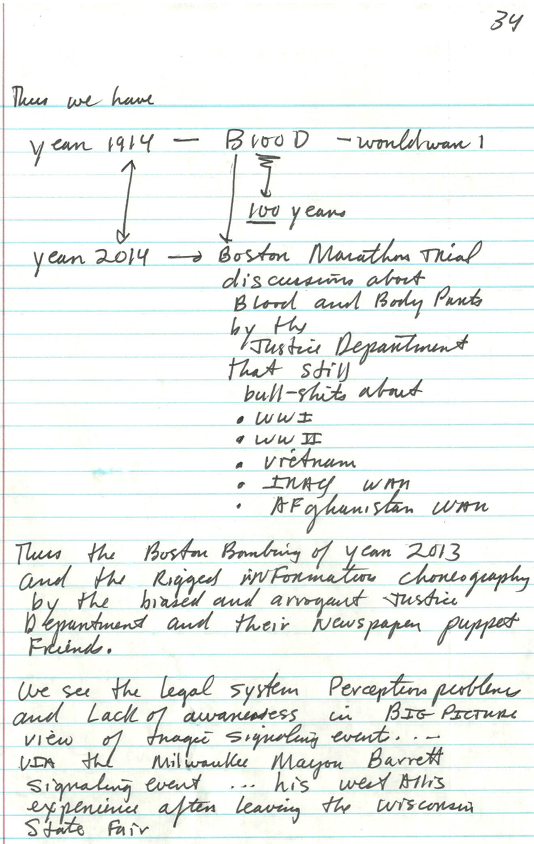 34
Thus we have
year 1914 — B100D — world war 1
100 years
year 2014 → Boston Marathon Trial
discussions about
Blood and Body Parts
by the
Justice Department
that still
bull-shits about
• WWI
• WWII
• Vietnam
• IRAQ WAR
• AFghanistan WAR
Thus the Boston Bombing of year 2013
and the Rigged inFormation choreography
by the biased and arrogant Justice
Department and their Newspaper puppet
Friends.
We see the legal system Perception problems
and Lack of awareness in BIG PICTURE
view of tragic signaling event....
VIA the Milwaukee Mayor Barrett
signaling event ... his west Allis
experience after leaving the Wisconsin
State Fair